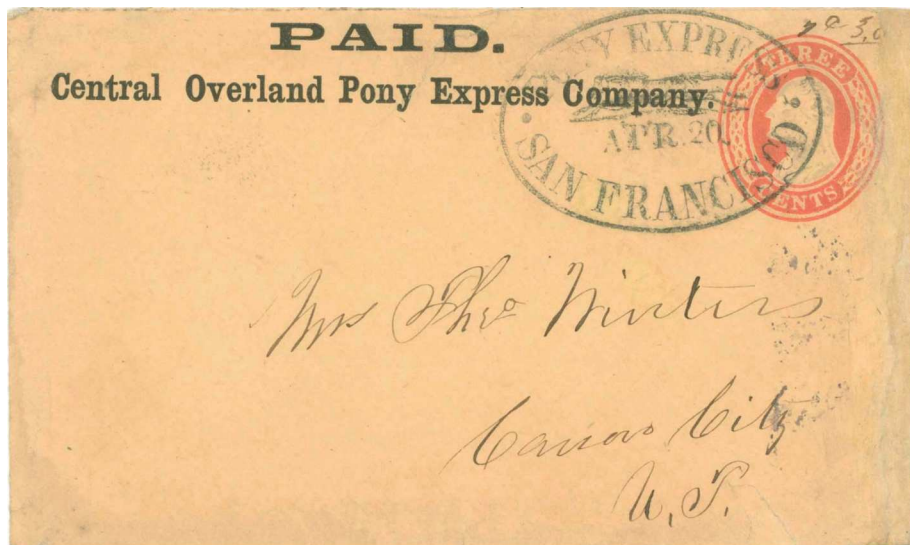 PAID.
Central Overland Pony Express Company.
PONY EXPRESS
APR. 20.
SAN FRANCISCO
THREE
CENTS
Mrs Theo Winters
Carson City
U. T.